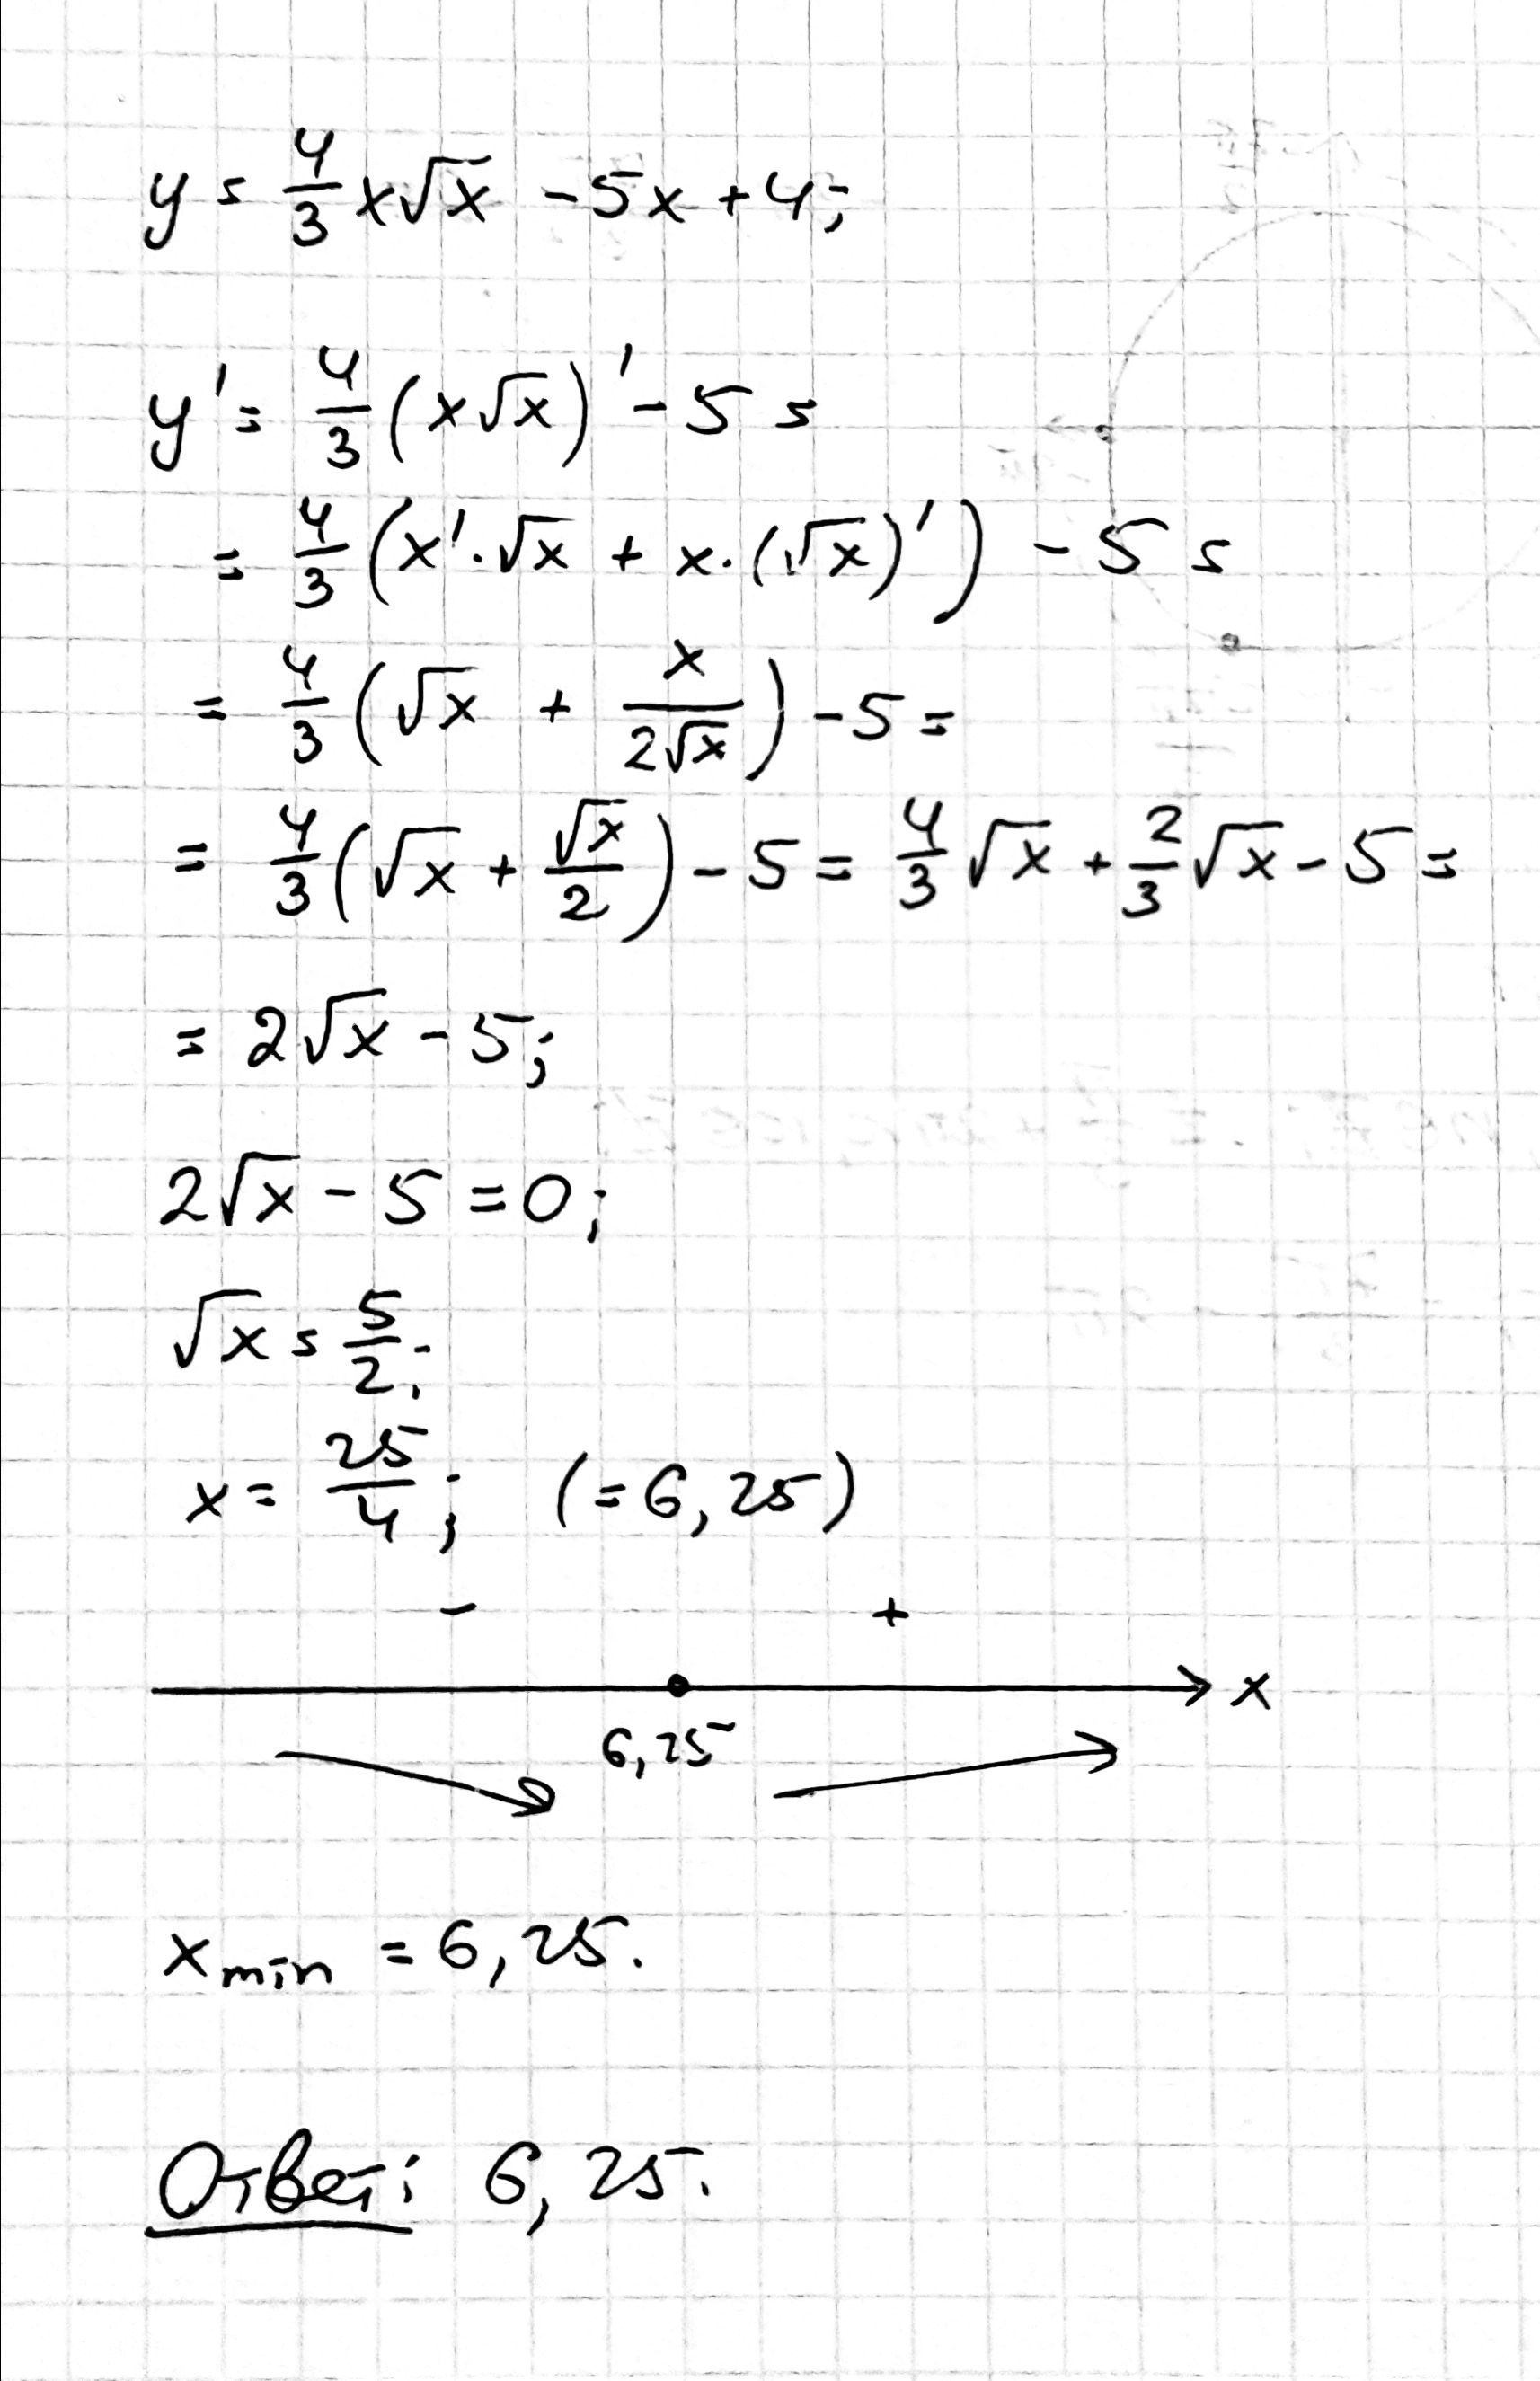 y = 4/3 x√x - 5x + 4;
y' = 4/3 (x√x)' - 5 =
= 4/3 (x'·√x + x·(√x)') - 5 =
= 4/3 (√x + x/(2√x)) - 5 =
= 4/3 (√x + √x/2) - 5 = 4/3 √x + 2/3 √x - 5 =
= 2√x - 5;
2√x - 5 = 0;
√x = 5/2;
x = 25/4; (= 6,25)
- +
x
6,25
x min = 6,25.
Ответ: 6,25.